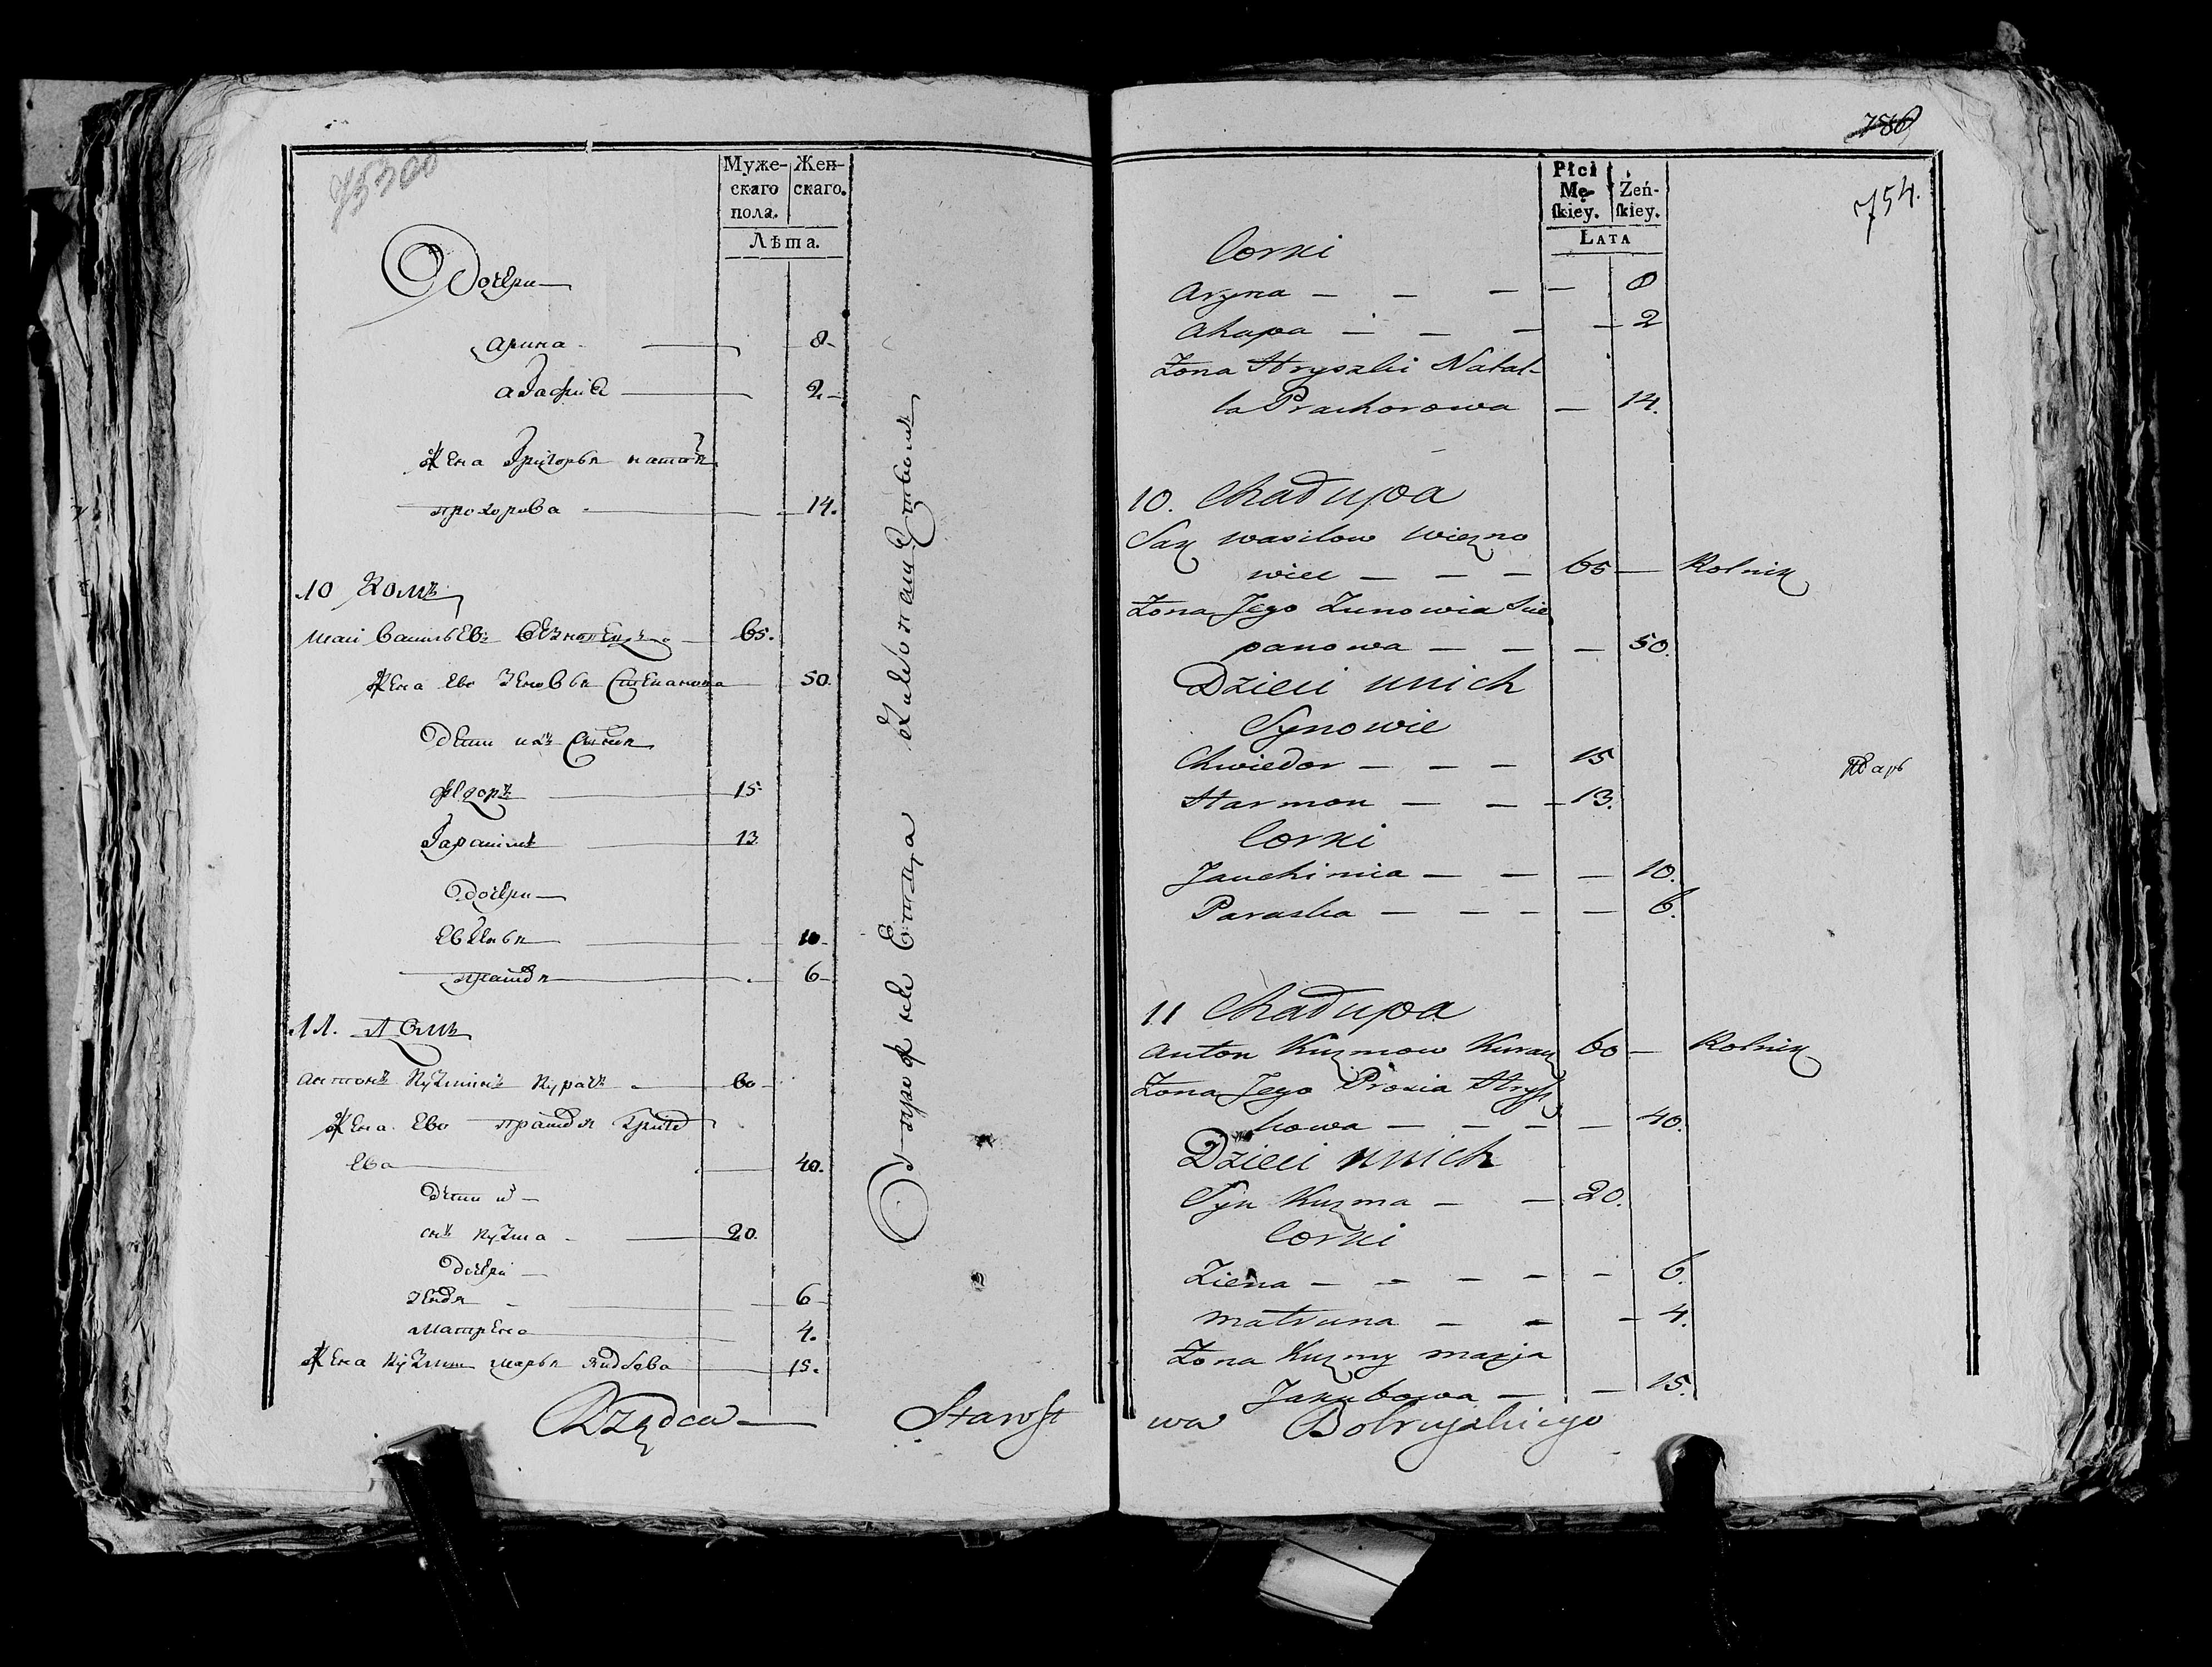 753 об
Муже- Жен-
скаго скаго.
пола.
Лѣта.
Дочери
арина 8
агафия 2
Жена Григорья натал
прохорова 14.
10 Домъ
Васильевъ 65.
Жена Ево Зеновья Степанова 50.
Дети ихъ Сыновья
Федоръ 15
13
Дочери
10
6
11. Домъ
антонъ кузминъ курачъ 60
Жена Ево Григо
рева 40.
Дети их
сынъ кузма 20.
Дочери
6
матрена 4.
Жена кузмы марья якубова 15.
Rządca Starost
786
754.
Płci
Mę- Żeń-
ſkiey. ſkiey.
LATA
Corki
Aryna — — — — 8
Ahapa — — — — 2
Żona Hryszki Natal-
la Prachorowa — 14.
10. Chałupa
wasilow wiezno
wiec — — — 65 — Rolnik
Żona Jego Zunowia Scie
panowa — — — 50.
Dzieci unich
Synowie
Chwiedor — — — 15
Harmon — — — 13.
Corki
Jauchimia — — — 10.
Paraska — — — — 6.
11 Chałupa
Anton Kuzmow Kuracz 60 — Rolnik
Żona Jego Prosia Hrysz
kowa — — — — 40.
Dzieci unich
Syn Kuzma — — 20.
Corki
Ziena — — — — — 6.
Matruna — — — 4.
Żona Kuzmy marja
Jakubowa — — 15.
wa Bobruyskiego